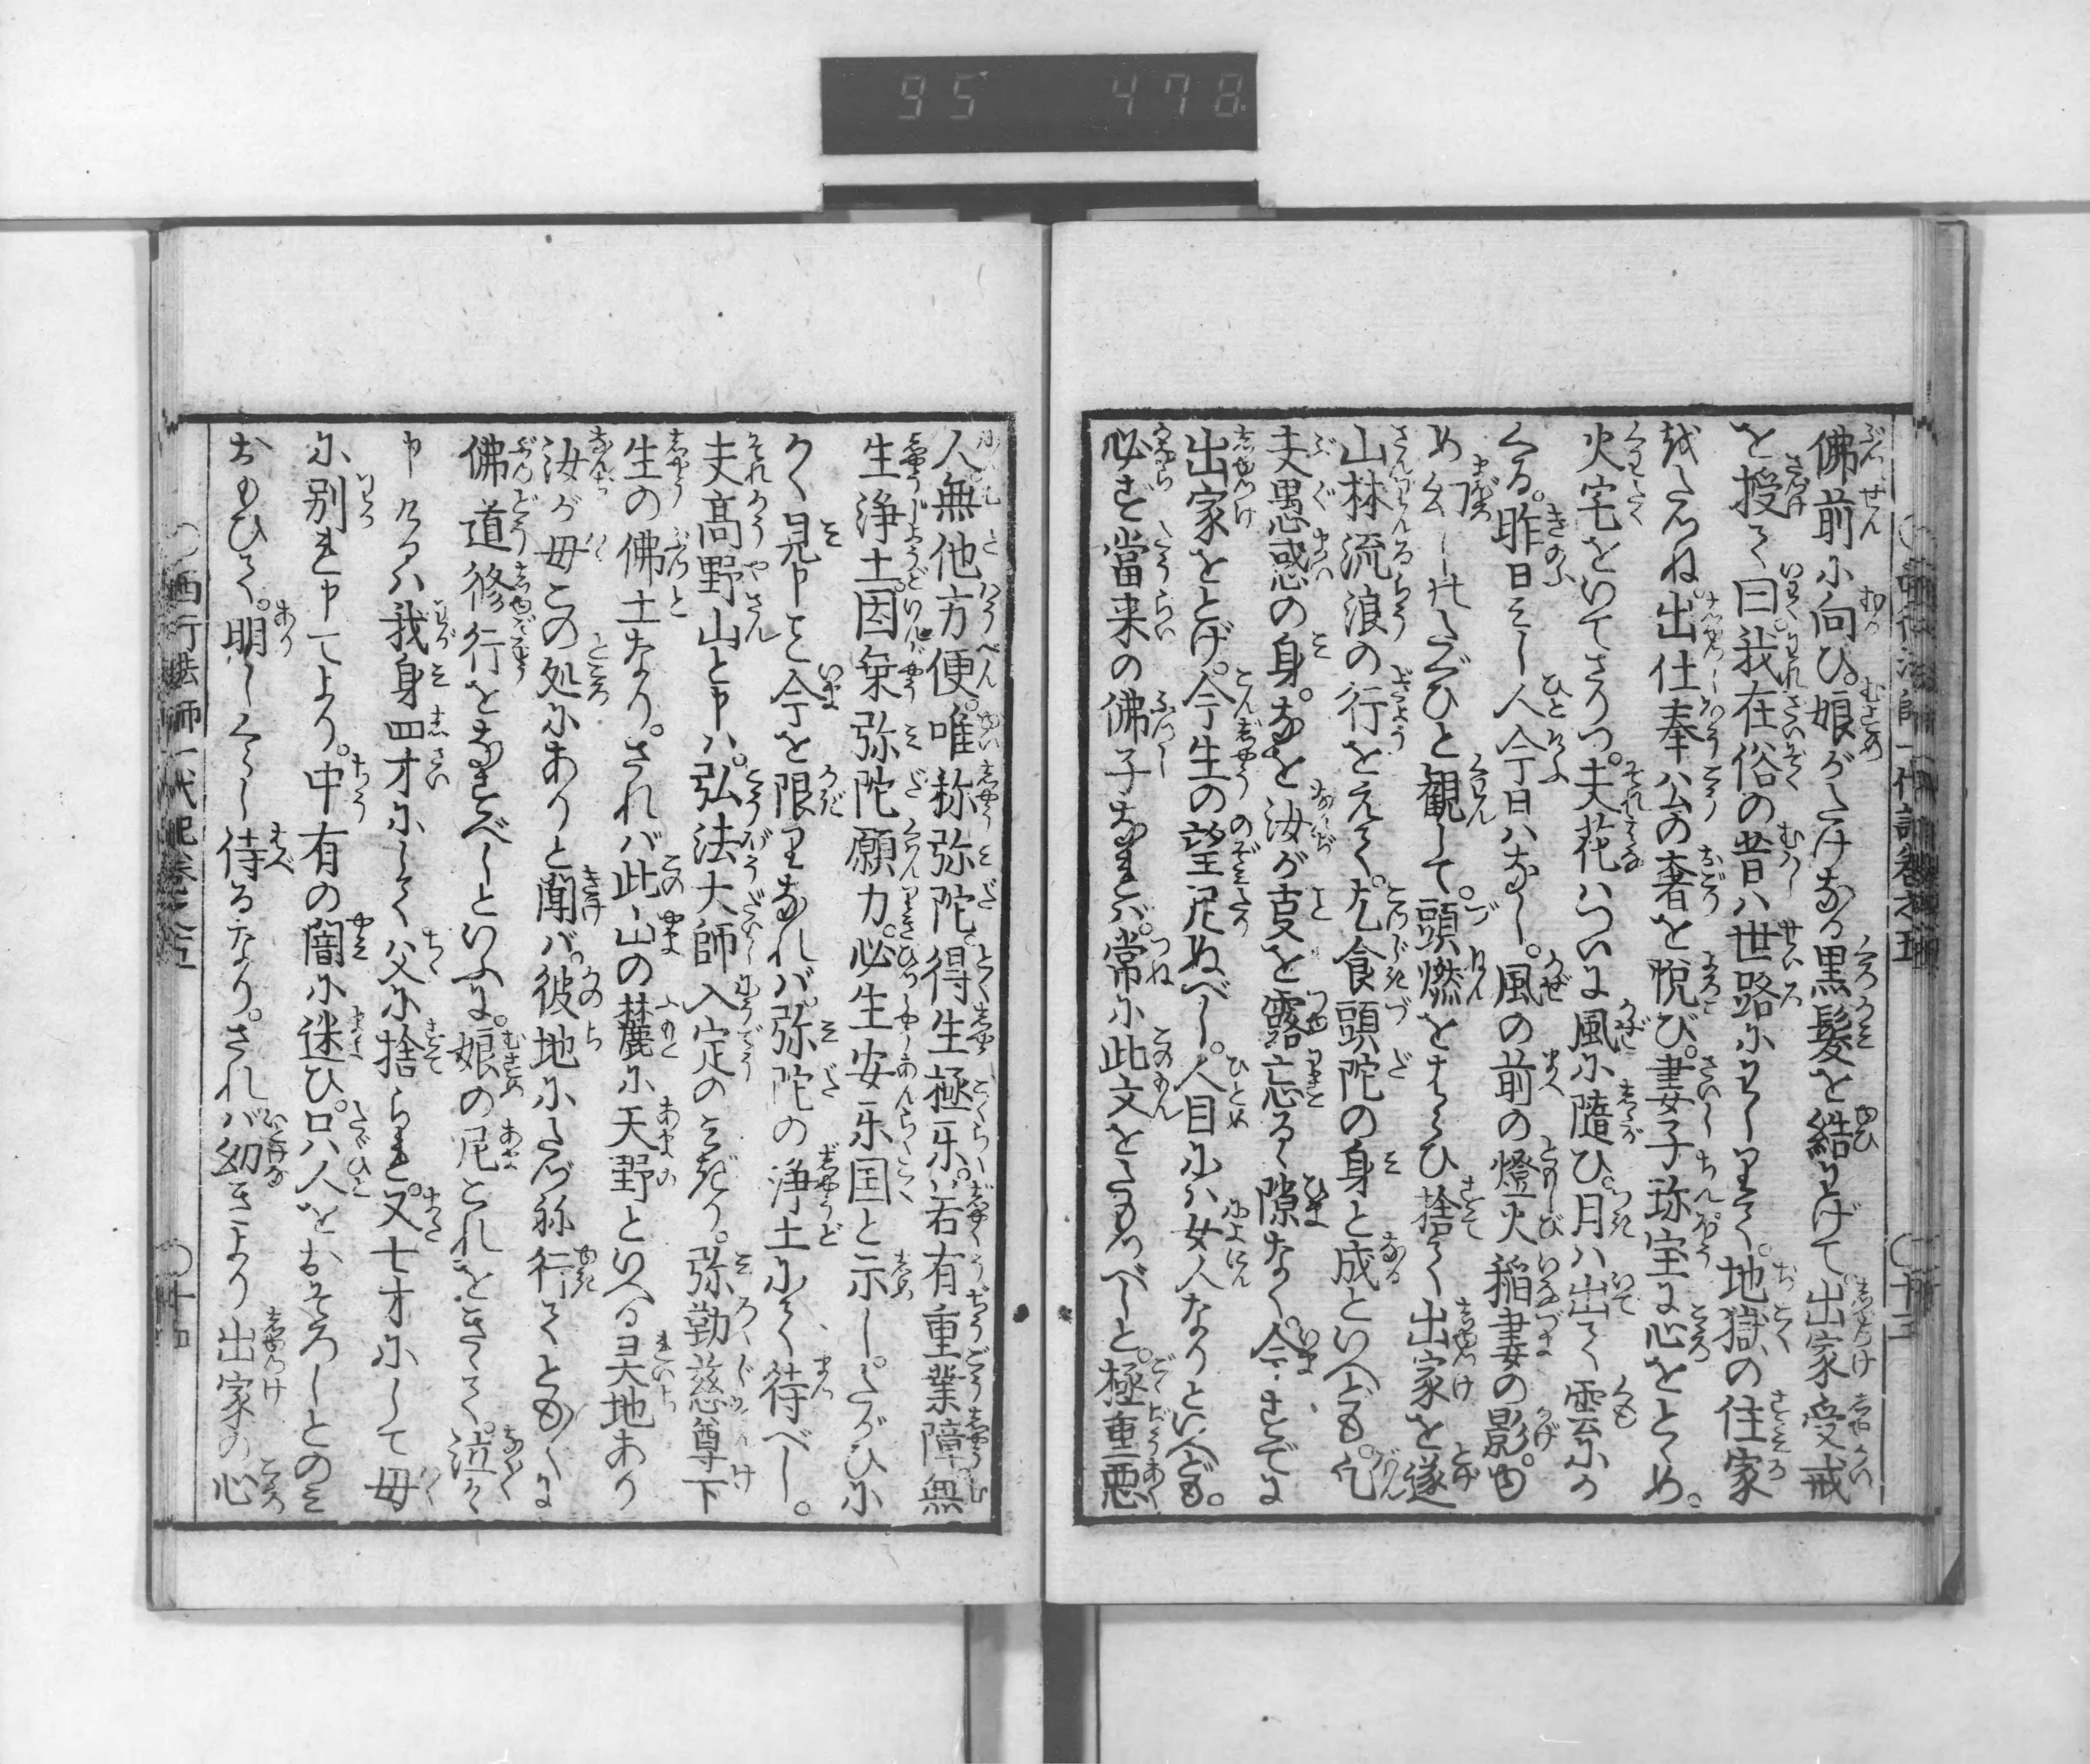 95 478
佛前に向ひ。娘がたけなる黒髪を結わげて出家受戒
を授て曰。我在俗の昔ハ世路にわしりて。地獄の住家
をたづね。出仕奉公の奢を悦び。妻子珍宝に心をとゞめ。
火宅をいでざりつ。夫花ハついに風に随ひ。月ハ出て雲にか
くる。昨日ミし人今日ハなし。風の前の燈火稲妻の影。ゆ
め幻しのたぐひと観して。頭燃をはらひ捨て出家を遂
山林流浪の行をえて。乞食頭陀の身と成といへども。凡
夫愚惑の身。なを汝が亊を露忘るゝ隙なく。今すでに
出家をとげ。今生の望足ぬべし。人目にハ女人なりといへども。
必ず當来の佛子なれバ。常に此文をたもつべしと。極重悪
人無他方便。唯称弥陀得生極乐。若有重業障無
生浄土因乗弥陀願力。必生安乐国と示し。たがひに
かく見申こと今を限りなれバ。弥陀の浄土にて待べし。
夫髙野山と申ハ。弘法大師入定のミぎり。弥勒慈尊下
生の佛土なり。されバ此山の麓に天野といへる灵地あり
汝が母この処にありと聞バ。彼地にたづね行てともゞに
佛道修行をなすべしといふに。娘の尼これをきゝて。泣々
申けるハ我身四才にして父に捨られ。又七才にして母
に別れ申てより。中有の闇に迷ひ。只人をおそろしとのミ
おもひて。明しくらし侍るなり。されバ幼きより出家の心
西行法師一代記巻之五 十四